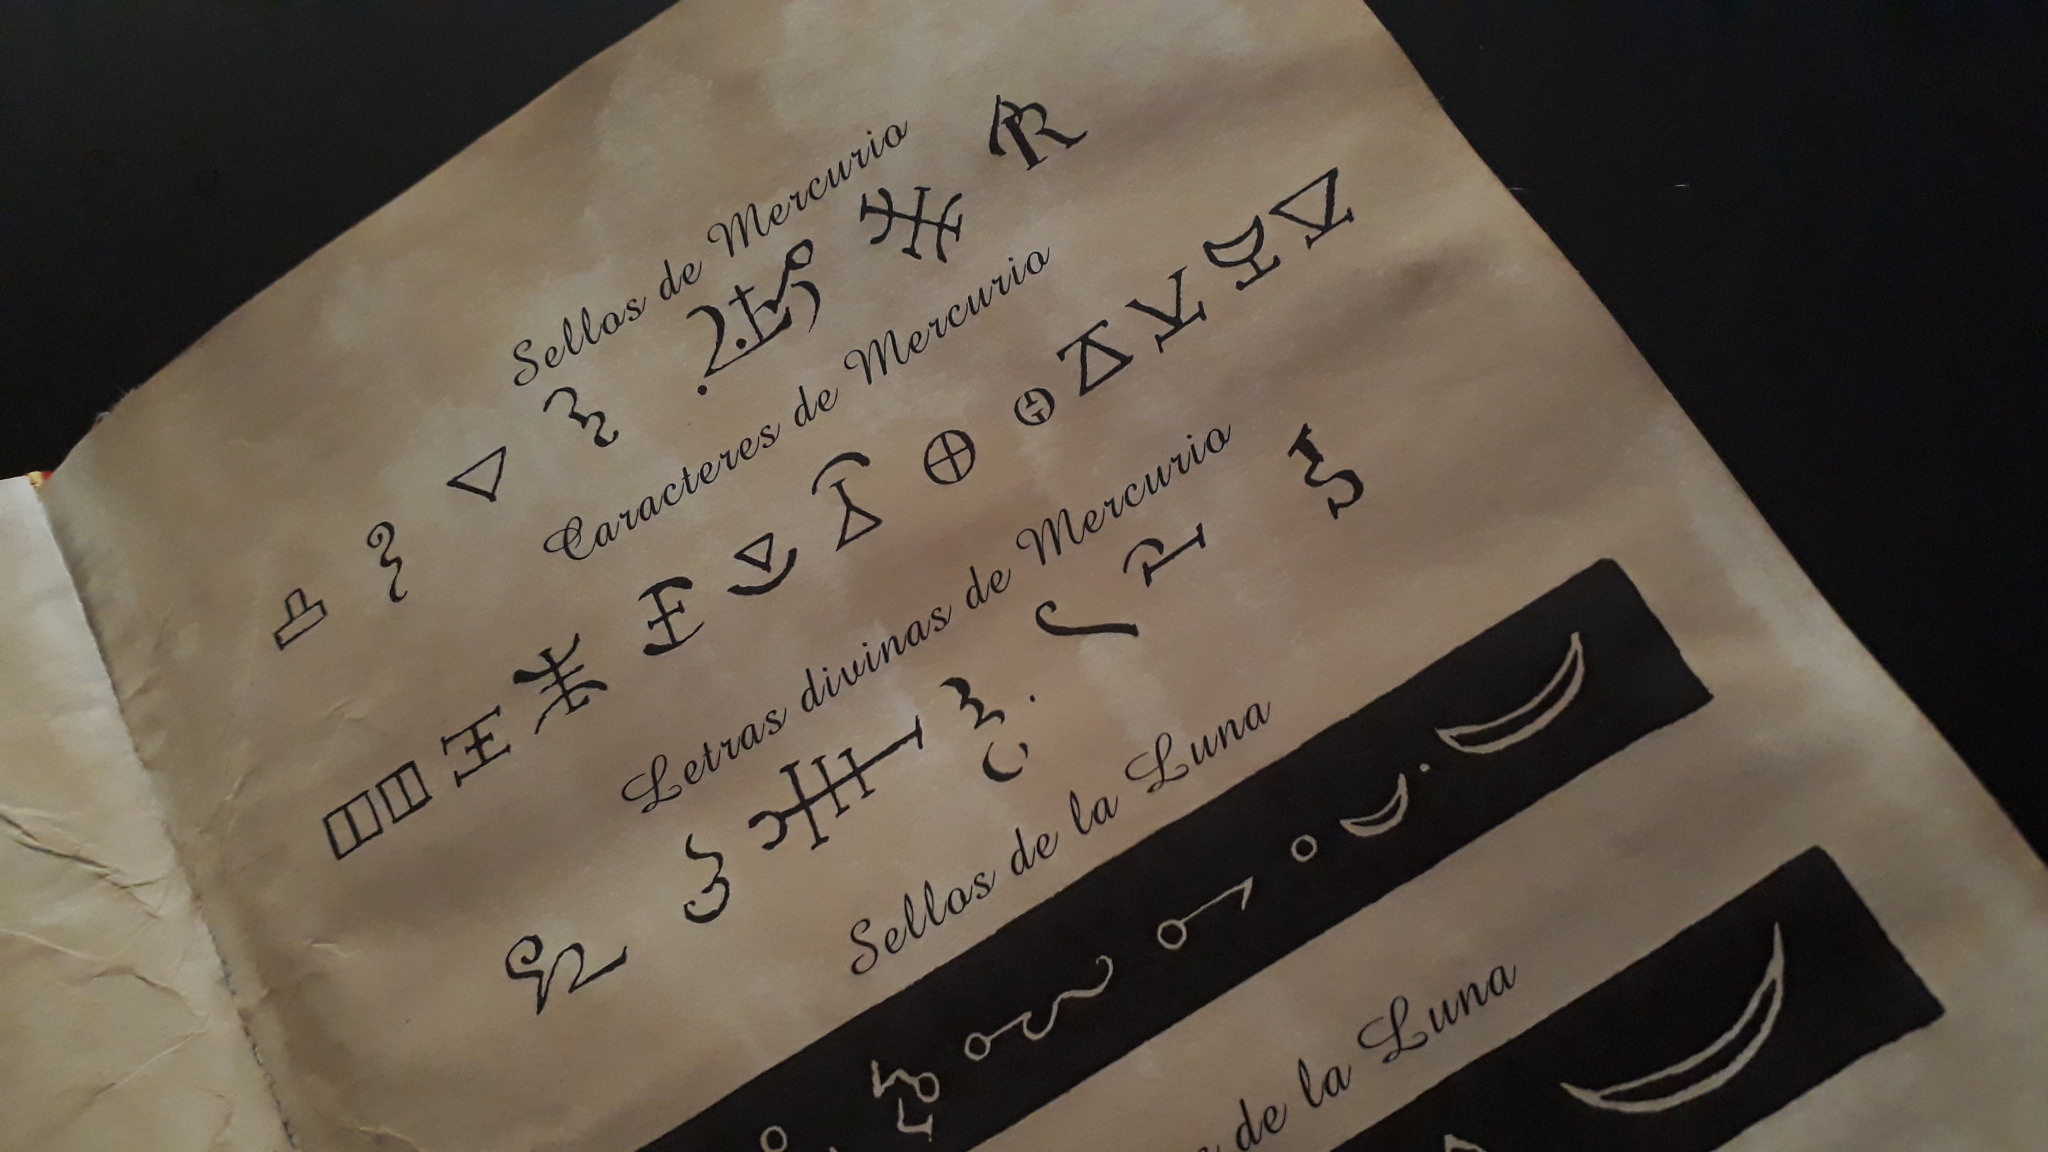 Sellos de Mercurio
Caracteres de Mercurio
Letras divinas de Mercurio
Sellos de la Luna
de la Luna